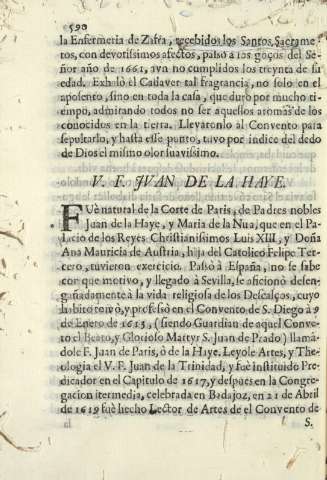 590
la Enfermeria de Zafra, recebidos los Santos Sacrame-
tos, con devotissimos afectos, passò a los goços del Se-
ñor año de 1661, aun no cumplidos los treynta de su
edad. Exhalò el Cadaver tal fragrancia, no solo en el
aposento, sino en toda la casa, que durò por mucho ti-
empo, admirando todos no ser aquellos aromas de los
conocidos en la tierra. Llevaronlo al Convento para
sepultarlo, y hasta esse punto, tuvo por indice del dedo
de Dios el mismo olor suavissimo.
V. F. JVAN DE LA HAYE.
FUè natural de la Corte de Paris, de Padres nobles
Juan de la Haye, y Maria de la Nua, que en el Pa-
lacio de los Reyes Christianissimos Luis XIII, y Doña
Ana Mauricia de Austria, hija del Catolico Felipe Ter-
cero, tuvieron exercicio. Passò à España, no se sabe
cor que motivo, y llegado à Sevilla, se aficionò desen-
gañadamente à la vida religiosa de los Descalços, cuyo
habito tomò, y professò en el Convento de S. Diego à 9
de Enero de 1615, (siendo Guardian de aquel Conve-
to el Beato, y Glorioso Martyr S. Juan de Prado) llamã-
dole F. Juan de Paris, ò de la Haye. Leyole Artes, y The-
ologia el V. F. Juan de la Trinidad, y fuè instituido Pre-
dicador en el Capitulo de 1617, y despues en la Congre-
gacion itermedia, celebrada en Badajoz, en 21 de Abril
de 1619 fuè hecho Lector de Artes de el Convento de
S.